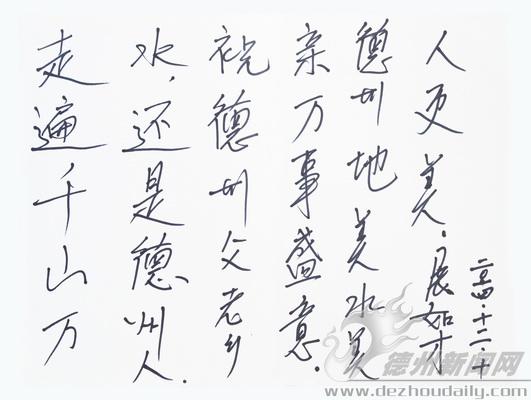 走遍千山万
水,还是德州人.
祝德州父老乡
亲万事盛意.
德州地美水美
人更美.
展如才
二〇一四·十二·十
德州新闻网
www.dezhoudaily.com